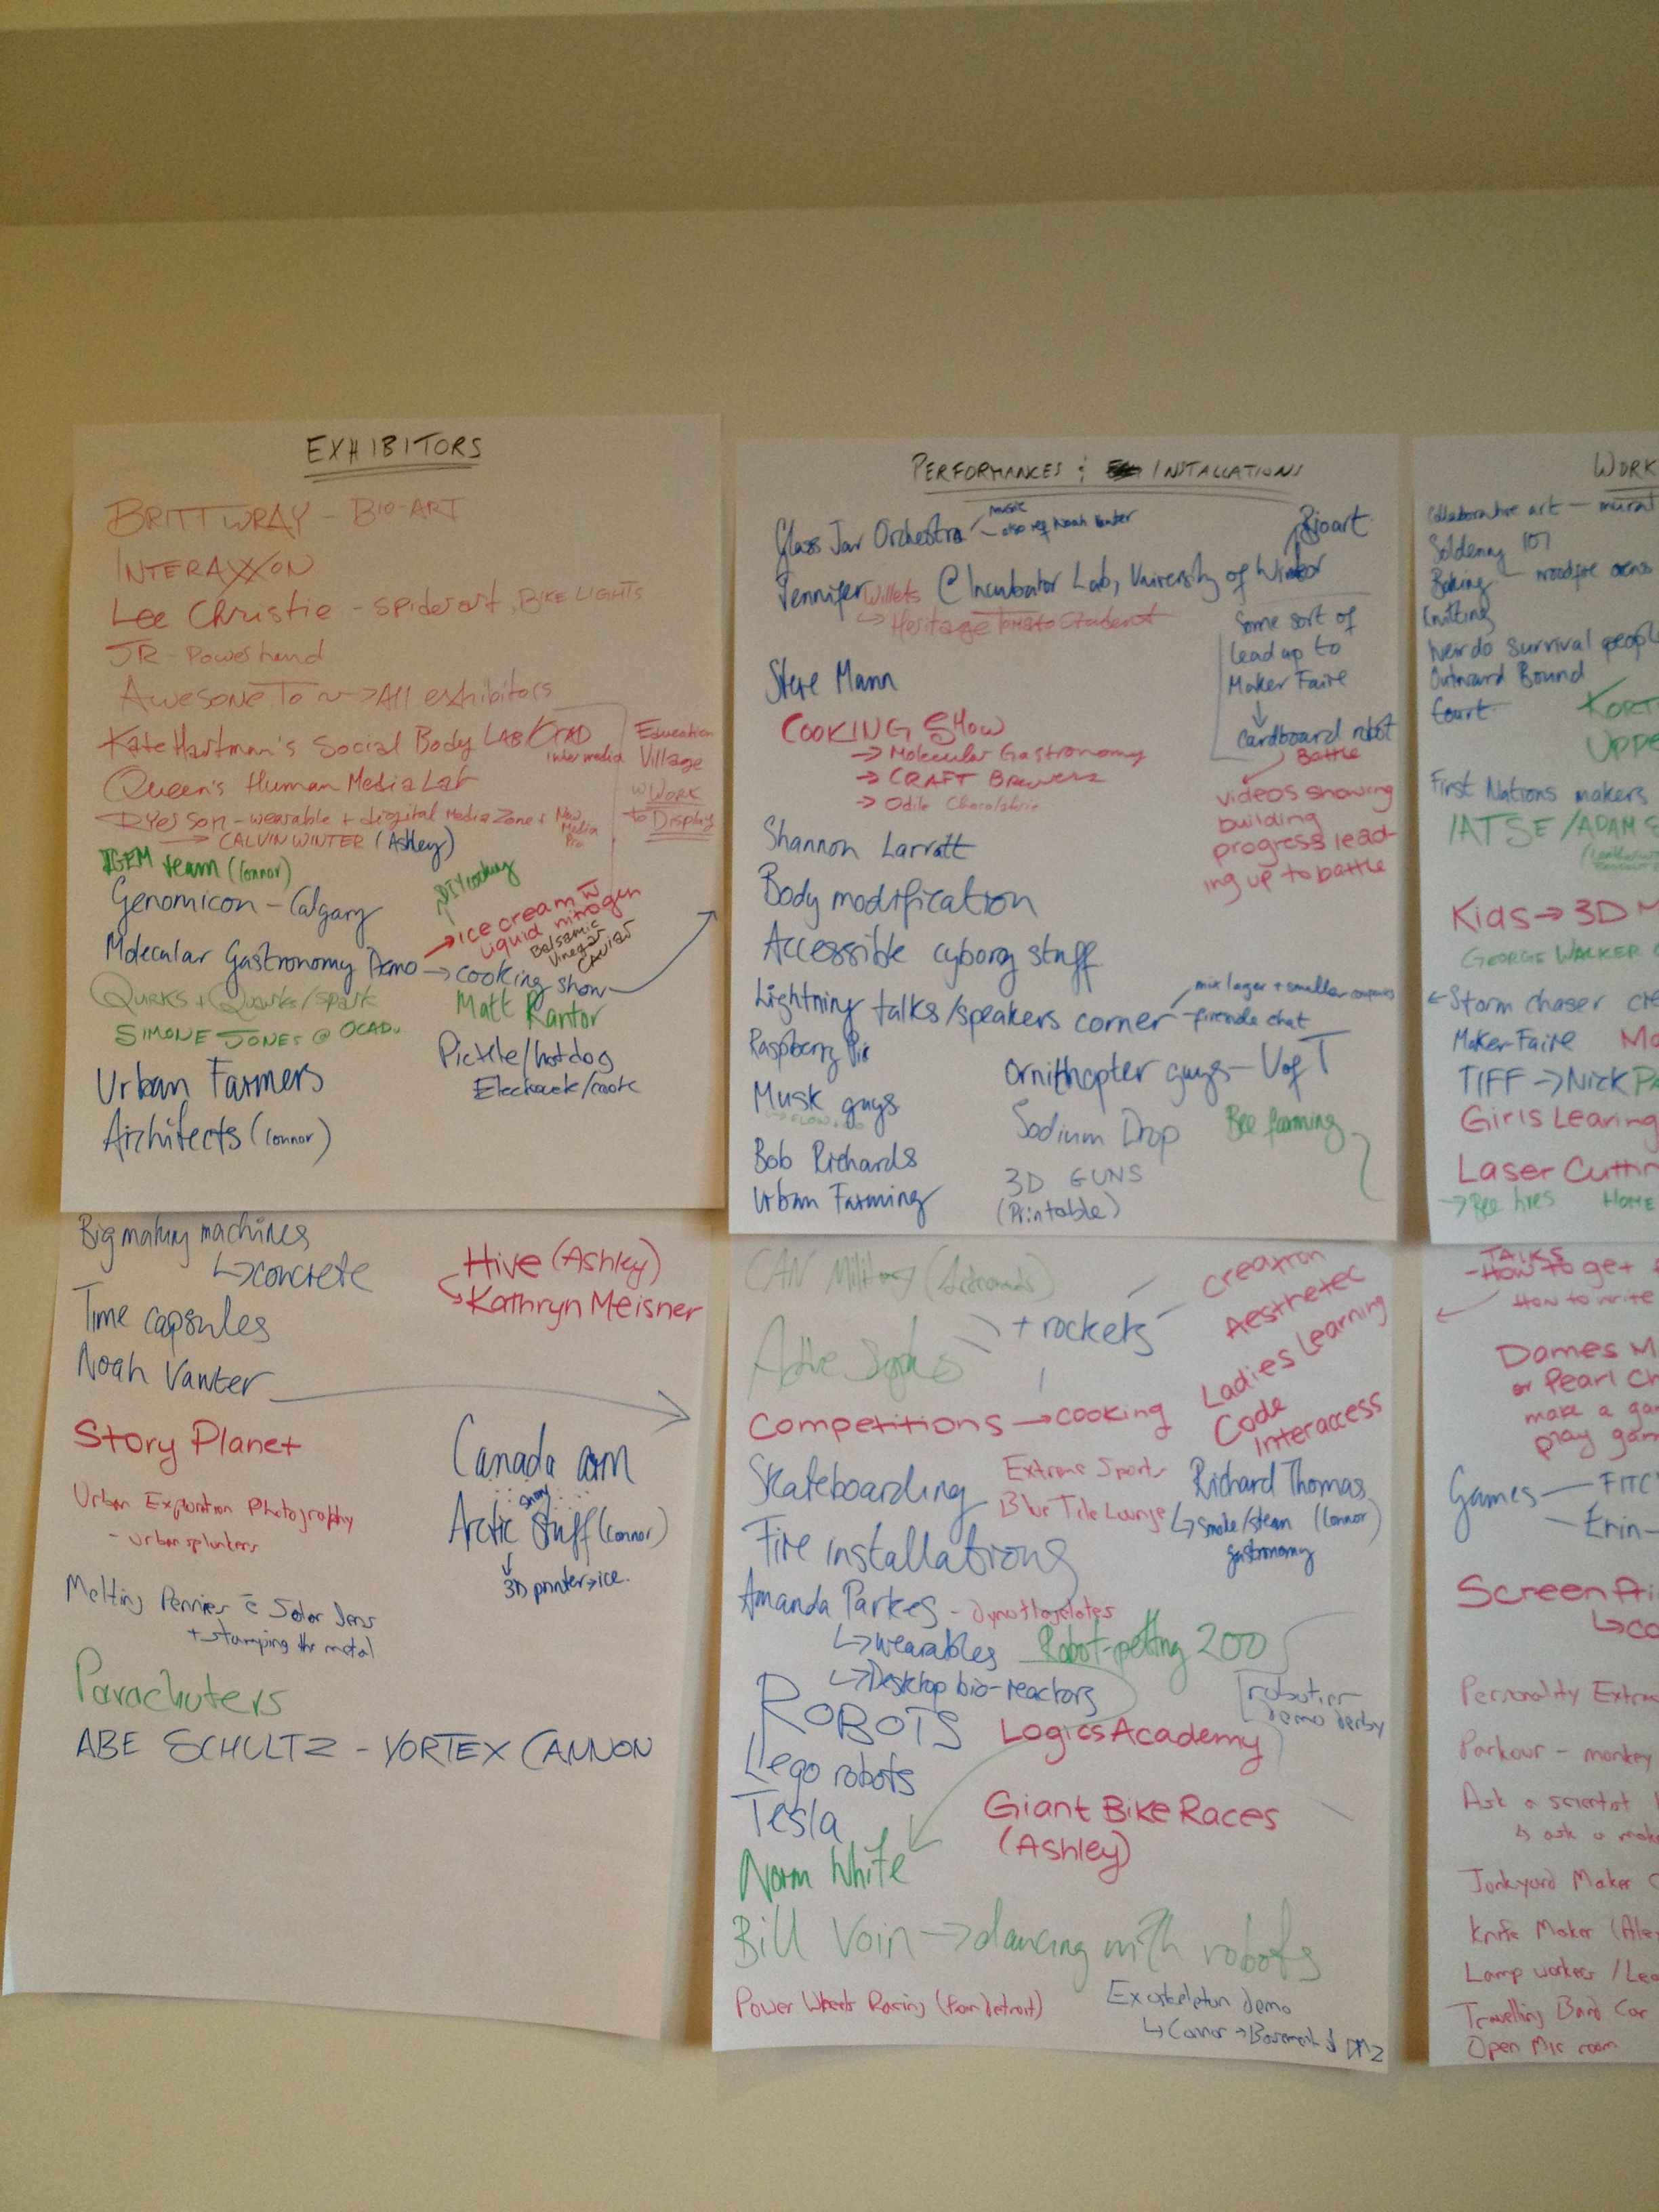 EXHIBITORS
BRITT WRAY - BIO-ART
INTERAXON
Lee Christie - spiderart, BIKE LIGHTS
JR - Powerhand
Awesome To ~ -> All exhibitors
Kate Hartman's Social Body LAB/OCAD
intermedia
Education
Village
w WORK
to Display
Queen's Human Media Lab
RYerson - wearable + digital Media Zone + New
Media
Pro
→ CALVIN WINTER (Ashley)
IGEM team (Connor)
DIY cooking
Genomicon - Calgary
→ ice cream w
liquid nitrogen
Balsamic
Vinegar
CAVIAR
Molecular Gastronomy Demo → cooking show
Quirks + Quarks/spark
Matt Kantor
SIMONE JONES @ OCADU
Pickle/hotdog
Urban Farmers
Architects (Connor)
Big making machines
↳ concrete
Hive (Ashley)
↳ Kathryn Meisner
Time capsules
Noah Vawter
Story Planet
Canada arm
Urban Exploration Photography
- urban splunkers
snowy
Arctic stuff (Connor)
↓
3D printer → ice.
Melting Pennies c Solar lens
+ stamping the metal
Parachuters
ABE SCHULTZ - VORTEX CANNON
PERFORMANCES ; INSTALLATIONS
Glass Jar Orchestra
music
Bioart
Jennifer Willets @ Incubator Lab, University of Windsor
↳ Heritage Tomato Student
Some sort of
lead up to
Maker Faire
↓
Cardboard robot
Battle
videos showing
building
progress lead-
ing up to battle
Steve Mann
COOKING SHOW
→ Molecular Gastronomy
→ CRAFT Brewers
→ Odile Chocolaterie
Shannon Larratt
Body modification
Accessible cyborg stuff
Lightning talks/speakers corner
mix larger + smaller companies
- fireside chat
Raspberry Pi
Ornithopter guys - U of T
Musk guys
Sodium Drop
Bee farming
Bob Richards
3D GUNS
(Printable)
Urban Farming
CAN Military (Astronauts)
+ rockets
Creatron
Aesthetec
Ladies Learning
Code
Interaccess
Competitions → cooking
Skateboarding
Extreme Sports
Blue Tile Lounge
Richard Thomas
↳ smoke/steam (Connor)
gastronomy
Fire installations
Amanda Parkes
↳ wearables
↳ Desktop bio-reactors
Robot-petting ZOO
ROBOTS
robotier
demo derby
Logics Academy
Lego robots
Tesla
Giant Bike Races
(Ashley)
Norm White
Bill Voin → dancing with robots
Power Wheels Racing (from Detroit)
Exoskeleton demo
↳ Connor → Basement of DMZ
WORK
Collaborative art - mural
Soldering 101
Baking - woodfire ovens
Knitting
weirdo survival people
Outward Bound
Court
KORT
UPPE
First Nations makers
IATSE / ADAM S
Kids → 3D M
GEORGE WALKER
← Storm chaser cre
Maker Faire Mo
TIFF → Nick PA
Girls Learing
Laser Cuttin
→ Bee hives HOME
TALKS
- How to get
How to write
Dames M
or Pearl Ch
make a gam
play gam
Games
- FITC
- Erin-
Screen Pri
↳ co
Personality Extre
Parkour - monkey
Ask a scientist
↳ ask a make
Junkyard Maker C
Knife Maker (Alex
Lamp workers / Lea
Travelling Band Car
Open Mic room